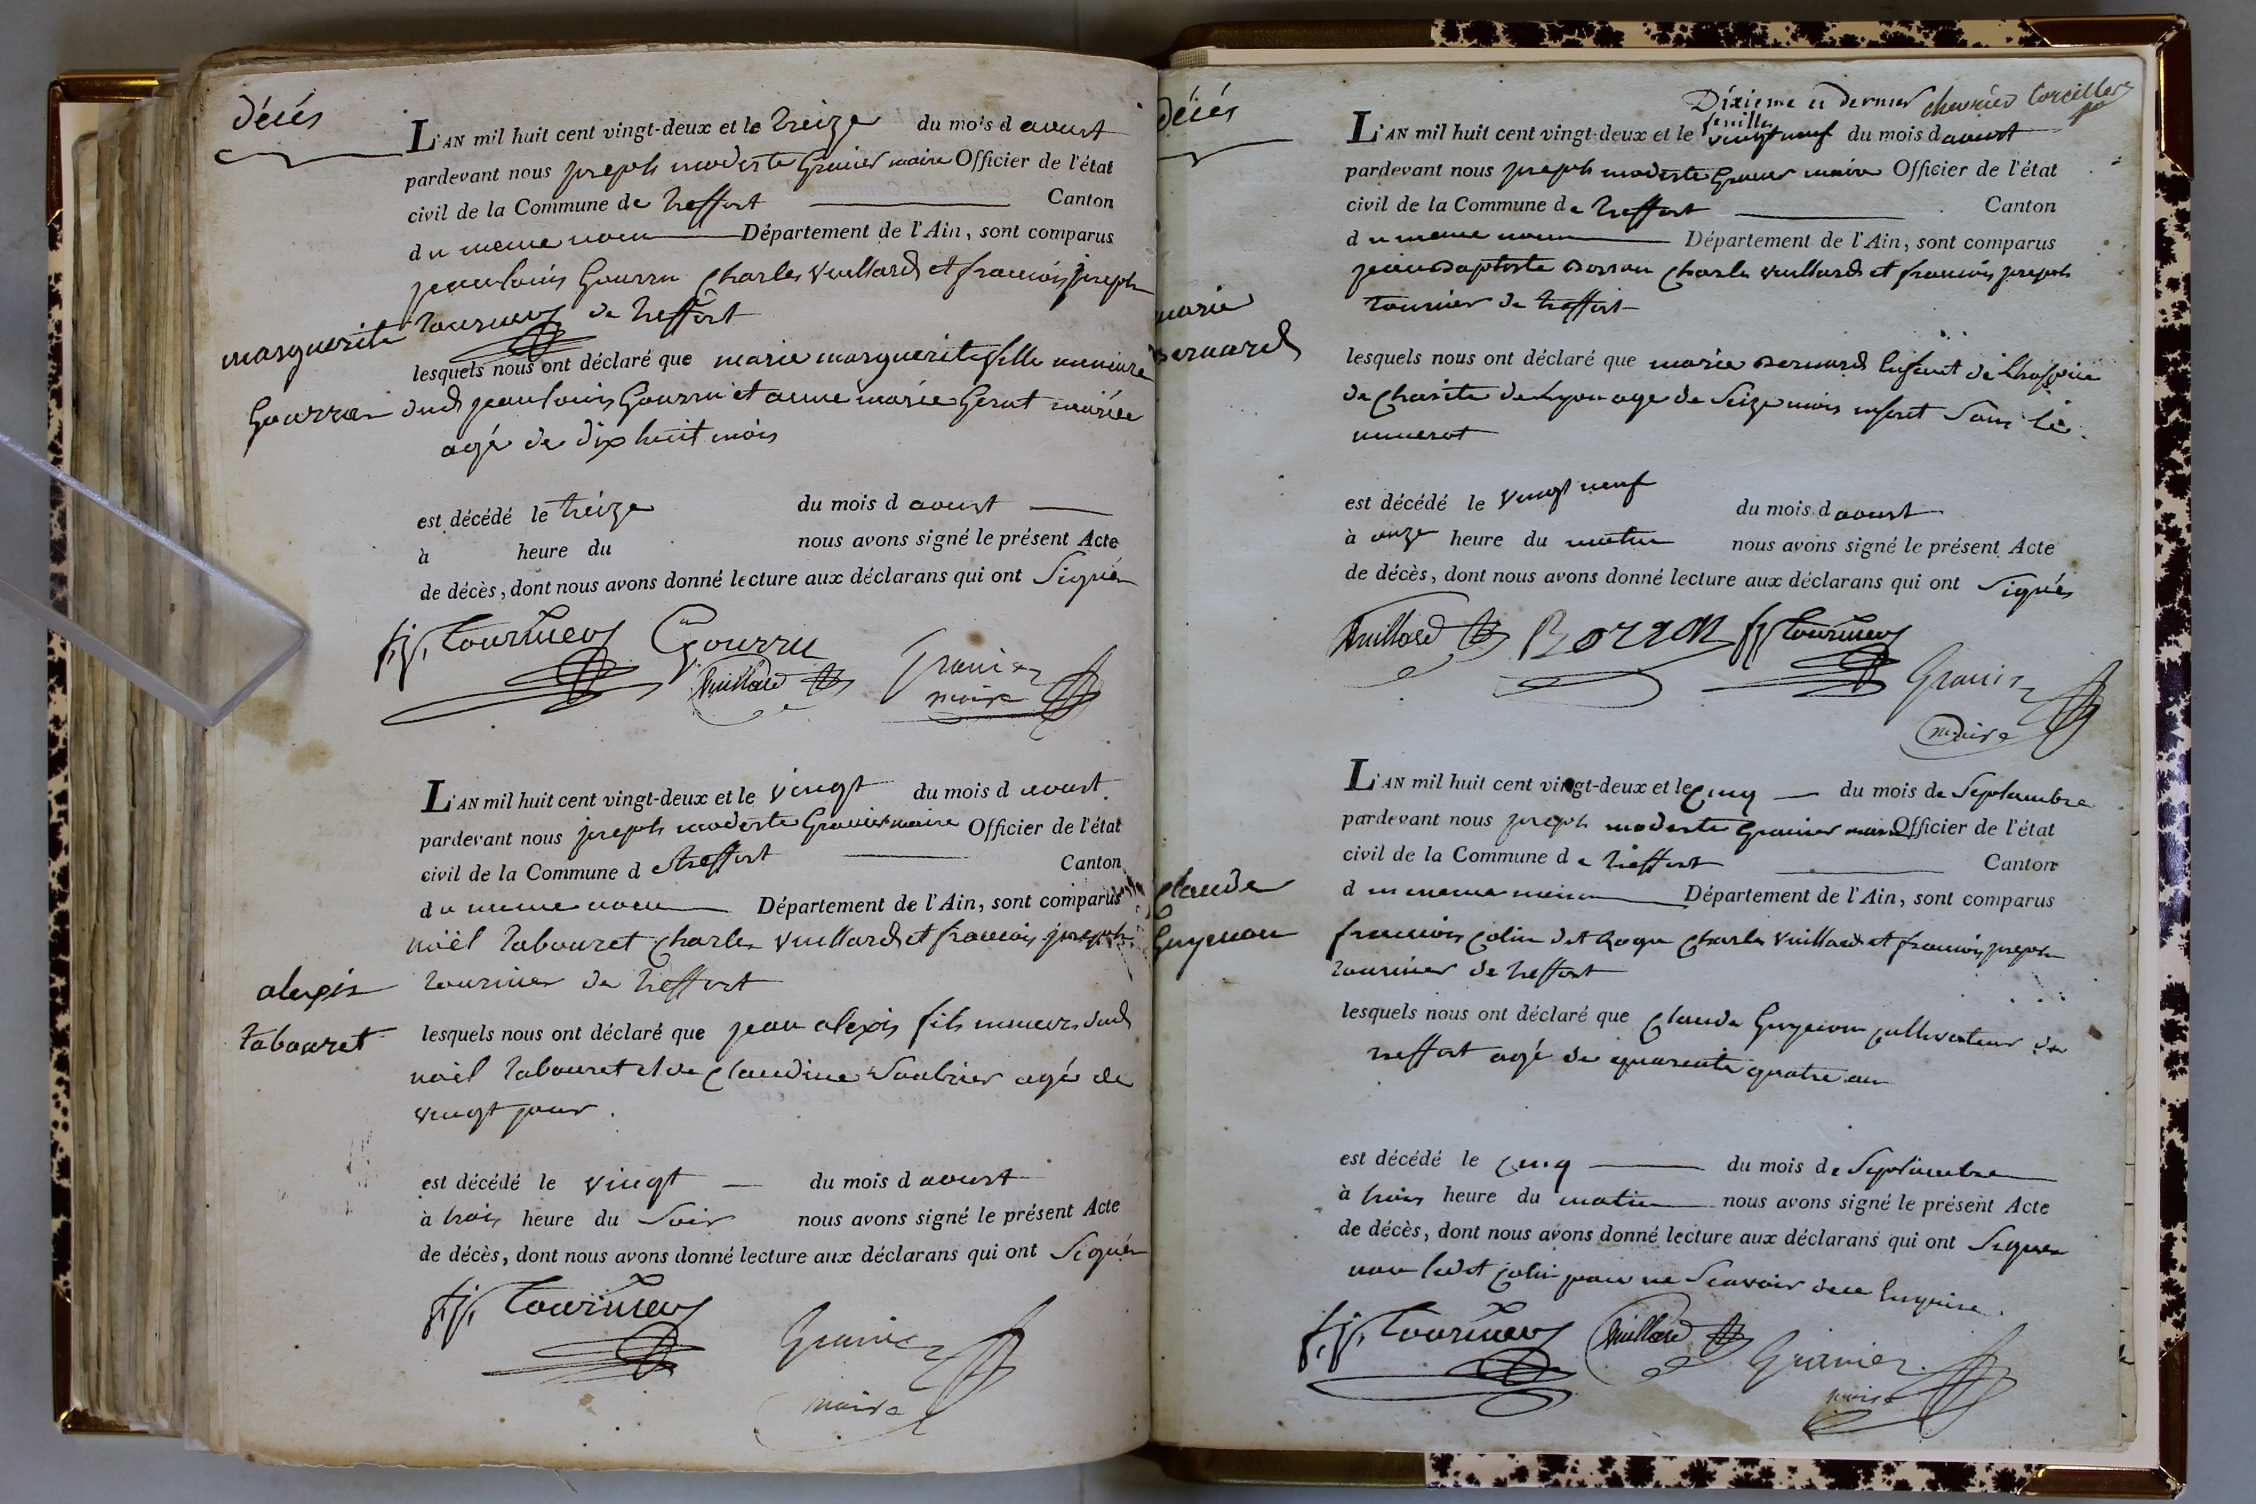 décés
L'AN mil huit cent vingt-deux et le treize du mois d aoust
pardevant nous joseph modeste Granier maire Officier de l'état
civil de la Commune de treffort Canton
du meme nom Département de l'Ain, sont comparus
jean louis Gourru Charles Vuillard et francois joseph
tournier de treffort
marguerite
Gourru
lesquels nous ont déclaré que marie marguerite fille mineure
dud jean louis Gourru et anne marie Gerut mariée
agé de dix huit mois
est décédé le treize du mois d aoust
à heure du nous avons signé le présent Acte
de décès, dont nous avons donné lecture aux déclarans qui ont Signés
f.j. Tournier Gourru
Vuillard Granier
maire
L'AN mil huit cent vingt-deux et le vingt du mois d aoust
pardevant nous joseph modeste Granier maire Officier de l'état
civil de la Commune d treffort Canton
du meme nom Département de l'Ain, sont comparus
noël tabouret Charles Vuillard et francois joseph
tournier de treffort
alexis
tabouret
lesquels nous ont déclaré que jean alexis fils mineur dud
noël tabouret et de Claudine Soubrier agé de
vingt jour.
est décédé le vingt du mois d aoust
à trois heure du Soir nous avons signé le présent Acte
de décès, dont nous avons donné lecture aux déclarans qui ont Signés
f.j. Tournier
Granier
maire
décés
Dixieme et dernier feuillet chevrier Corcelles
L'AN mil huit cent vingt-deux et le vingt neuf du mois d aoust
pardevant nous joseph modeste Granier maire Officier de l'état
civil de la Commune de treffort Canton
du meme nom Département de l'Ain, sont comparus
jean Baptiste Borron Charles Vuillard et francois joseph
tournier de treffort
marie
Bernard
lesquels nous ont déclaré que marie Bernard Enfant de Lhospice
de Charite de Lyon age de Seize mois inscrit Sous le
numerot
est décédé le vingt neuf du mois d aoust
à onze heure du matin nous avons signé le présent Acte
de décès, dont nous avons donné lecture aux déclarans qui ont Signés
Vuillard Borron f.j. Tournier
Granier
maire
L'AN mil huit cent vingt-deux et le Cinq du mois de Septambre
pardevant nous joseph modeste Granier maire Officier de l'état
civil de la Commune de treffort Canton
du meme nom Département de l'Ain, sont comparus
Claude
Guyenon
francois Colin dit Roque Charles Vuillard et francois joseph
tournier de treffort
lesquels nous ont déclaré que Claude Guyenon Cultivateur de
treffort agé de quarente quatre an
est décédé le Cinq du mois de Septambre
à trois heure du matin nous avons signé le présent Acte
de décès, dont nous avons donné lecture aux déclarans qui ont Signés
non ledit Colin pour ne Scavoir de ce Enquise.
f.j. Tournier Vuillard Granier
maire